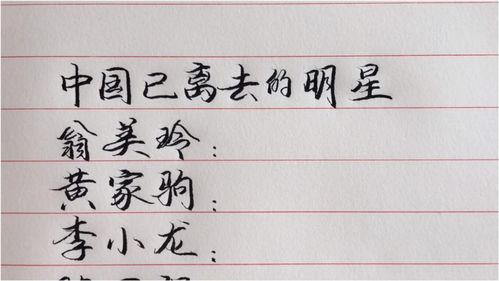 中国已离去的明星
翁美玲：
黄家驹：
李小龙：